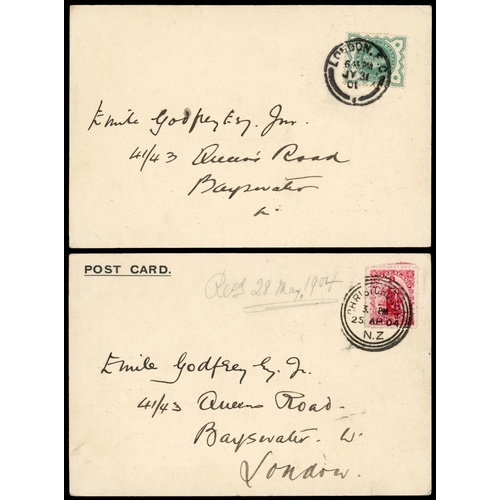 LONDON. E.C
6.45 PM
JY 31
01
Emile Godfrey Esq. Jnr.
41/43 Queen's Road
Bayswater
W.
POST CARD.
Recd 28 May, 1904
CHRISTCHURCH
3. PM
25 AP 04
N.Z
Emile Godfrey Esq. Jr.
41/43 Queens Road.
Bayswater. W.
London.